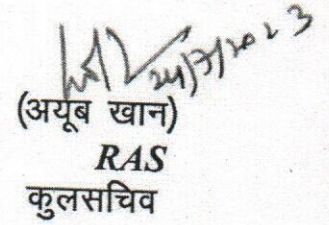 24/7/2023
(अयूब खान)
RAS
कुलसचिव